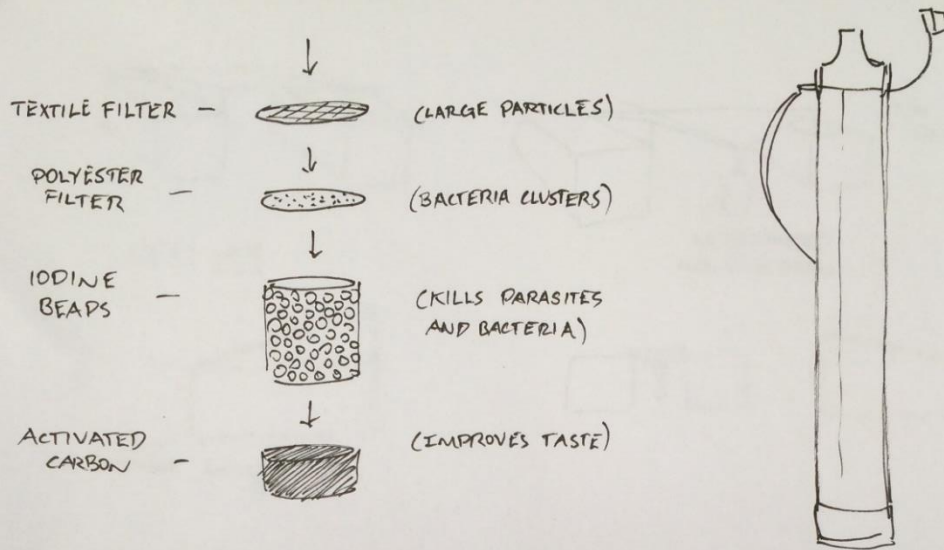 TEXTILE FILTER - (LARGE PARTICLES)
POLYESTER
FILTER - (BACTERIA CLUSTERS)
IODINE
BEADS - (KILLS PARASITES
AND BACTERIA)
ACTIVATED
CARBON - (IMPROVES TASTE)